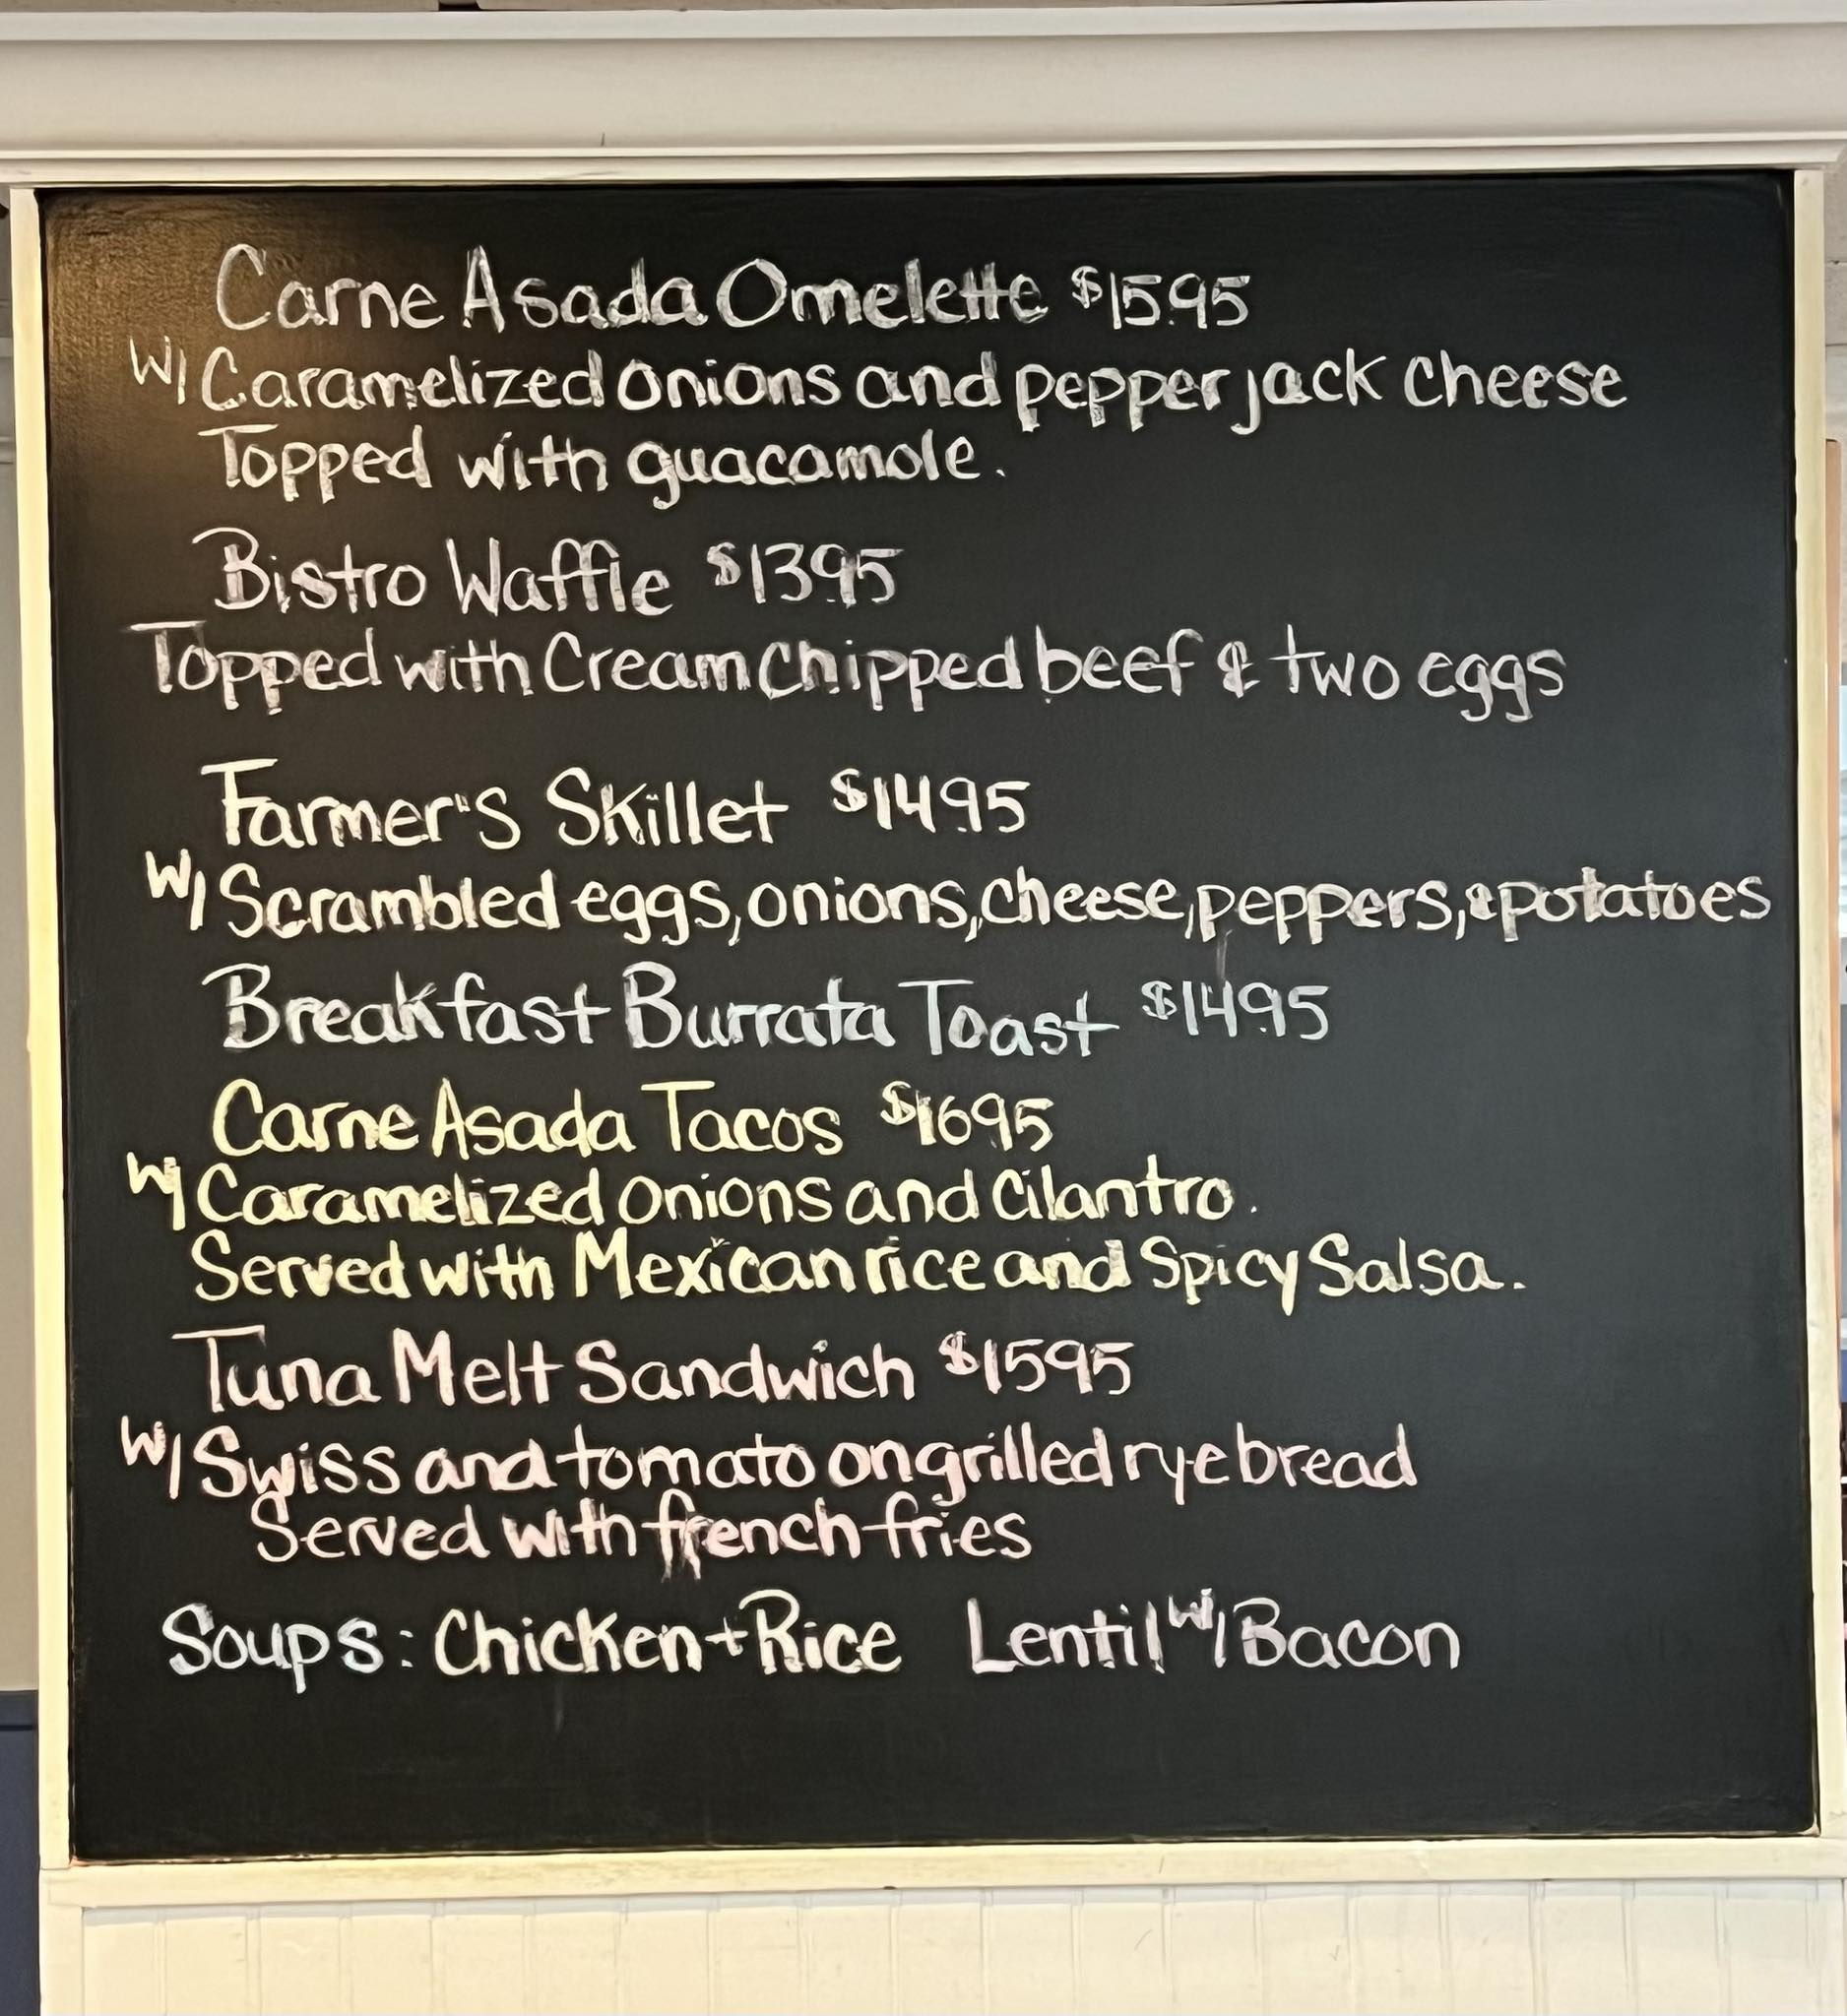 Carne Asada Omelette $15.95
W/ Caramelized onions and pepper jack cheese
Topped with guacamole.
Bistro Waffle $13.95
Topped with Cream Chipped beef & two eggs
Farmer's Skillet $14.95
W/ Scrambled eggs, onions, cheese, peppers, & potatoes
Breakfast Burrata Toast $14.95
Carne Asada Tacos $1695
W/ Caramelized onions and cilantro.
Served with Mexican rice and Spicy Salsa.
Tuna Melt Sandwich $1595
W/ Swiss and tomato on grilled rye bread
Served with french fries
Soups: Chicken + Rice Lentil w/ Bacon